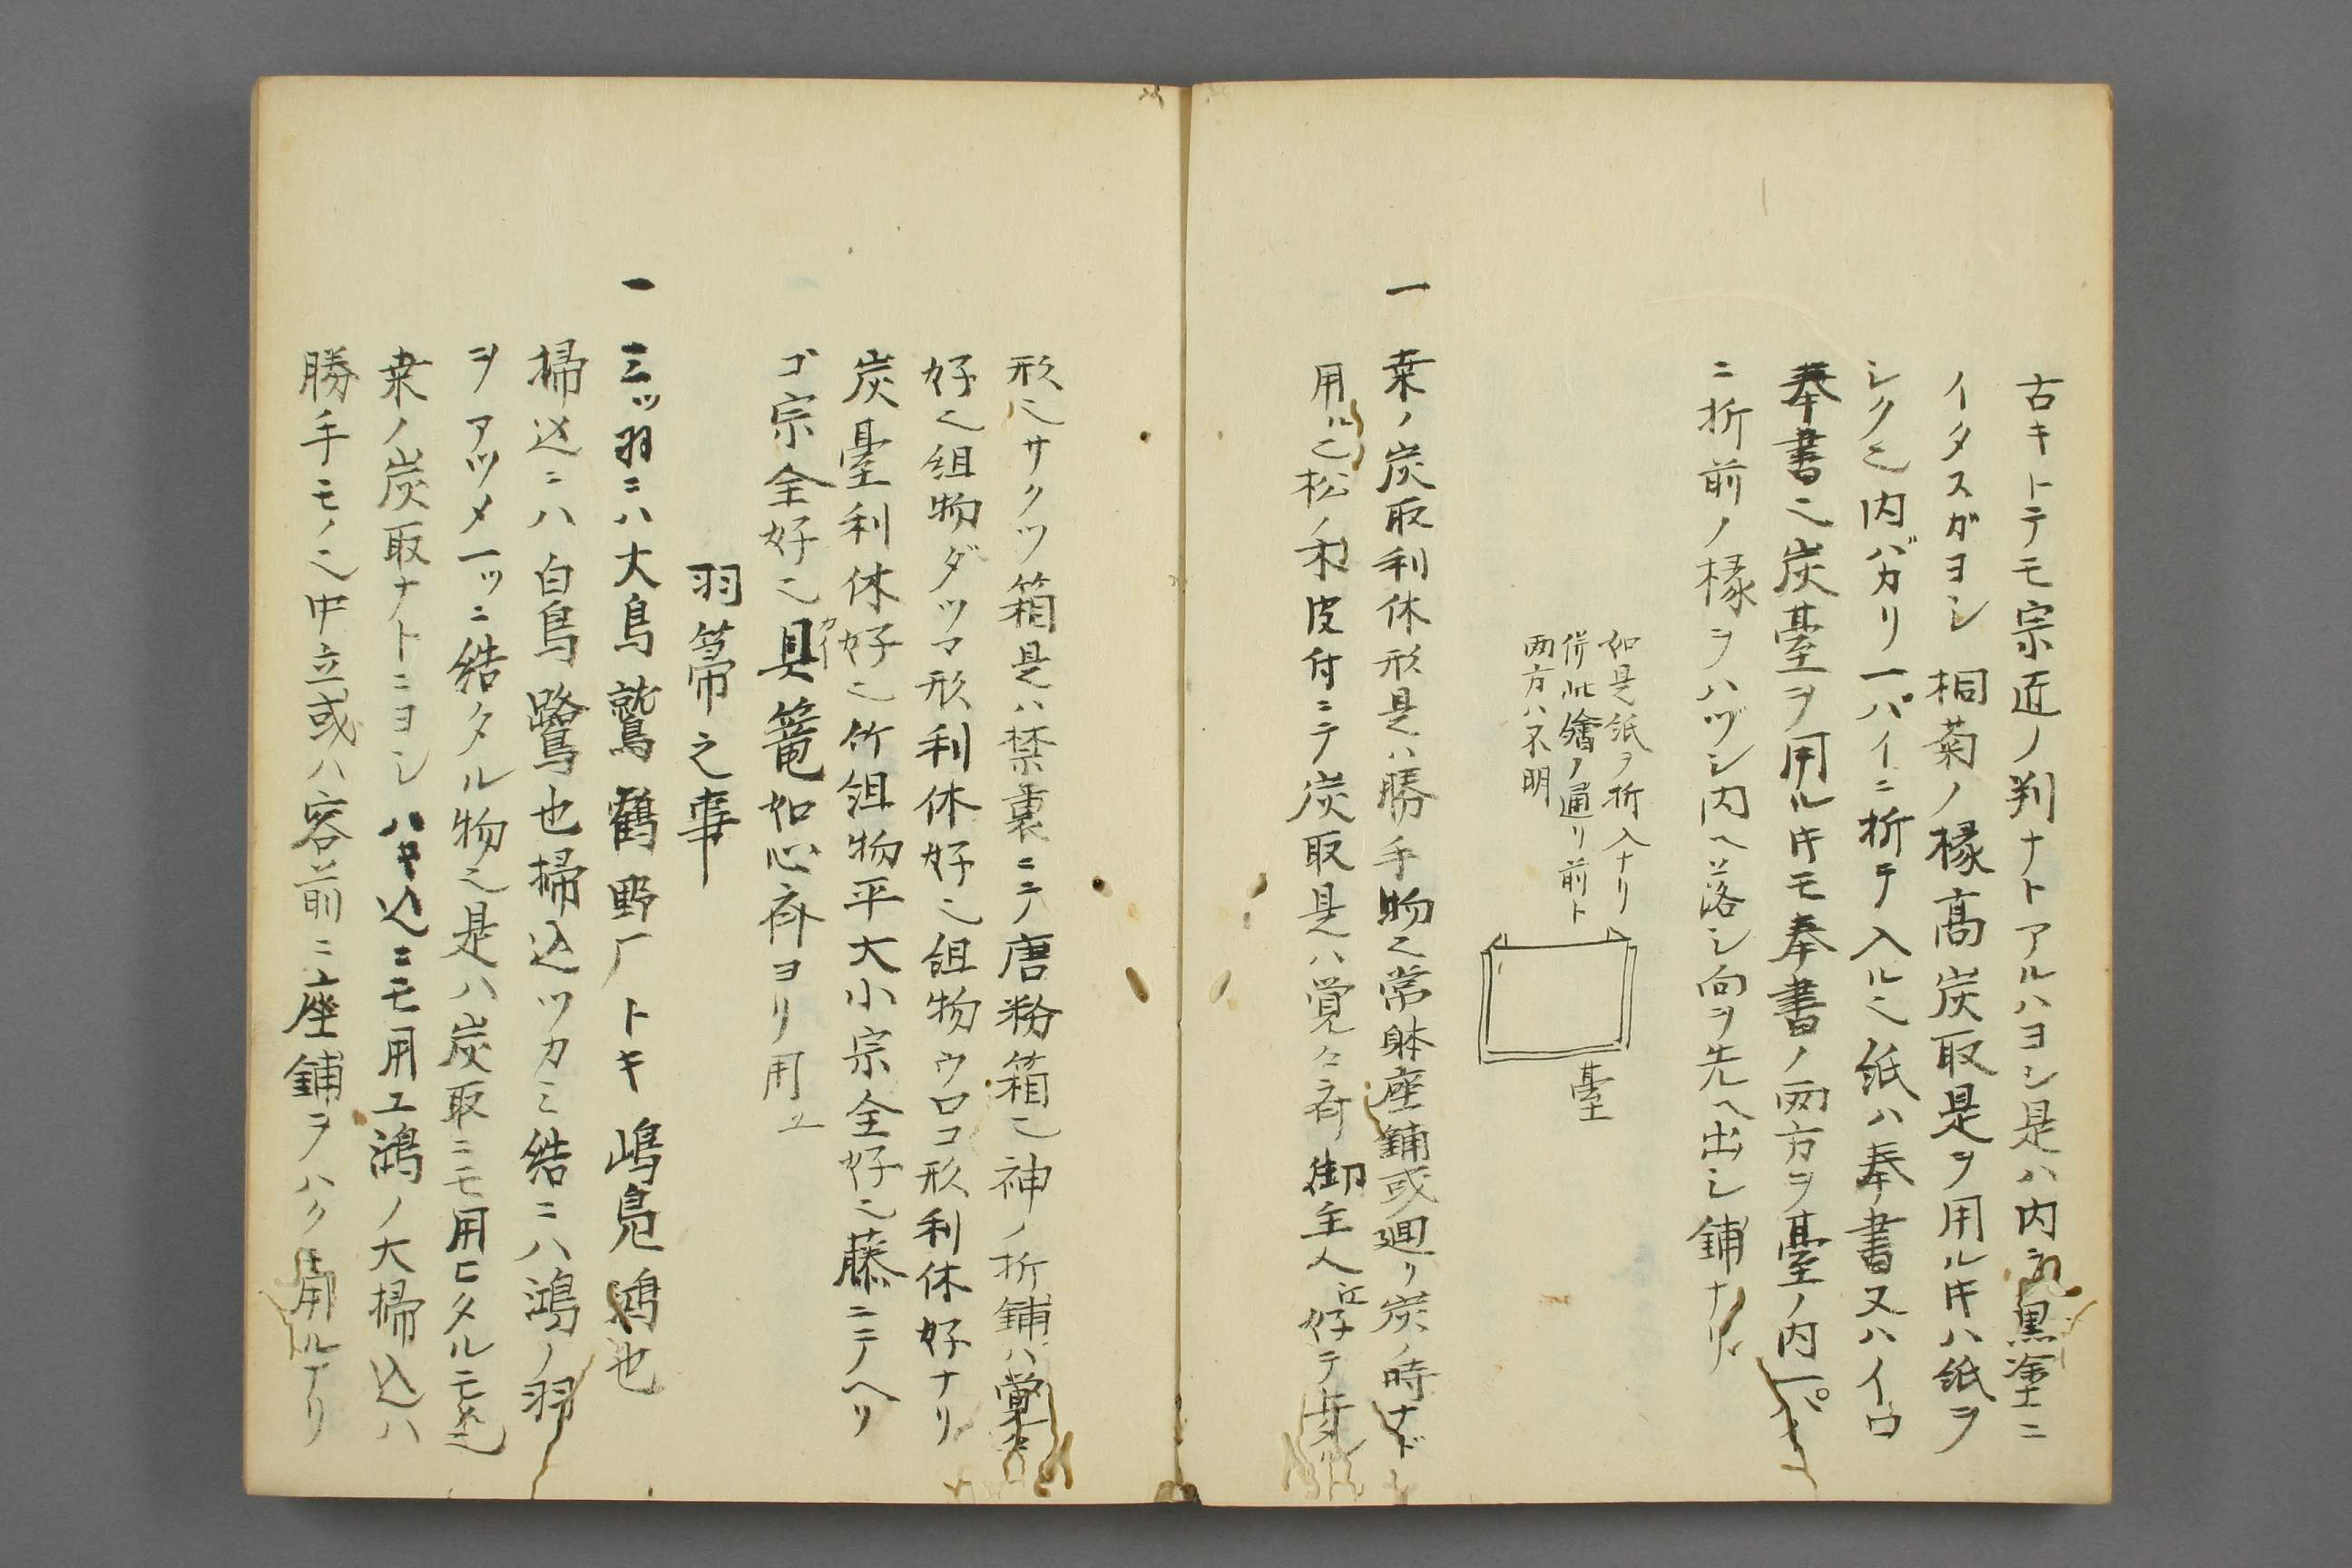 古キトテモ宗匠ノ判ナトアルハヨシ是ハ内黒塗ニ
イタスガヨシ 桐菊ノ椽高炭取是ヲ用ル𪜈ハ紙ヲ
シク也内バカリ一パイニ折テ入ル也紙ハ奉書又ハイロ
奉書也炭臺ヲ用ル𪜈モ奉書ノ両方ヲ臺ノ内一パイ
ニ折前ノ椽ヲハヅシ内ヘ落シ向ヲ先ヘ出シ鋪ナリ
如是紙ヲ折入ナリ
併此繪ノ通リ前ト
両方ハ不明
臺
一 桒ノ炭取利休形是ハ勝手物也常躰座鋪或廻リ炭ノ時ナド
用ル也松ノ木皮付ニテ炭取是ハ覚々斎御主人江好テ
形也サクツ箱是ハ禁裏ニテ唐粉箱也神ノ折鋪ハ覚々
好也組物ダツマ形利休好也組物ウロコ形利休好ナリ
炭臺利休好也竹組物平大小宗全好也藤ニテノヘリ
ゴ宗全好也具篭如心斎ヨリ用ユ
カイ
羽箒之事
一 三ッ羽ニハ大鳥鷲鶴野厂トキ嶋鳧鴻也
掃込ニハ白鳥鷺也掃込ツカミ結ニハ鴻ノ羽
ヲアツメ一ッニ結タル物也是ハ炭取ニモ用ヒタルモ
桒ノ炭取ナトニヨシハキ込ニモ用ユ鴻ノ大掃込ハ
勝手モノ也中立或ハ客前ニ座鋪ヲハク𪜈用ルナリ